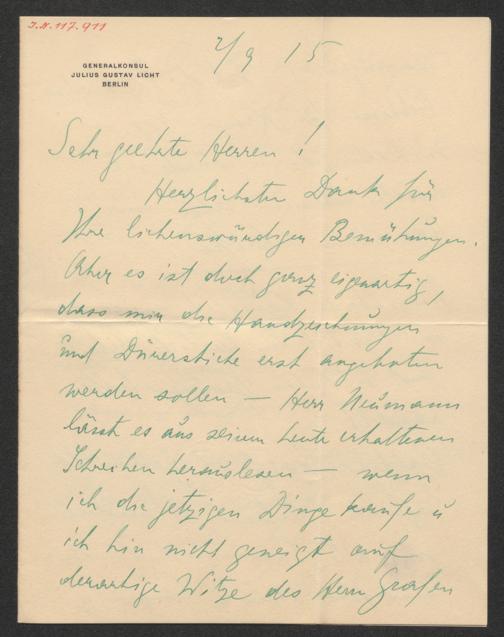 J.N. 117.911
2/9 15
GENERALKONSUL
JULIUS GUSTAV LICHT
BERLIN
Sehr geehrte Herren!
Herzlichsten Dank für
Ihre liebenswürdigen Bemühungen.
Aber es ist doch ganz eigenartig,
dass mir die Handzeichnungen
und Dürerstiche erst angeboten
werden sollen — Herr Neumann
lässt es aus seinem heute erhaltenen
Schreiben herauslesen — wenn
ich die jetzigen Dinge kaufe u
ich bin nicht geneigt auf
derartige Witze des Herrn Grafen